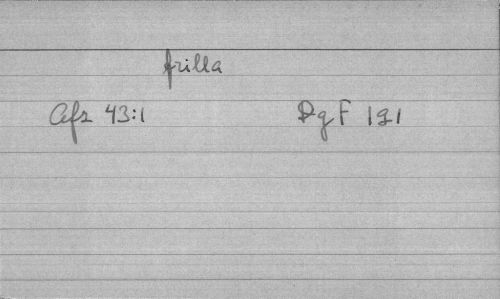 frilla
Afz 43:1 DgF 191